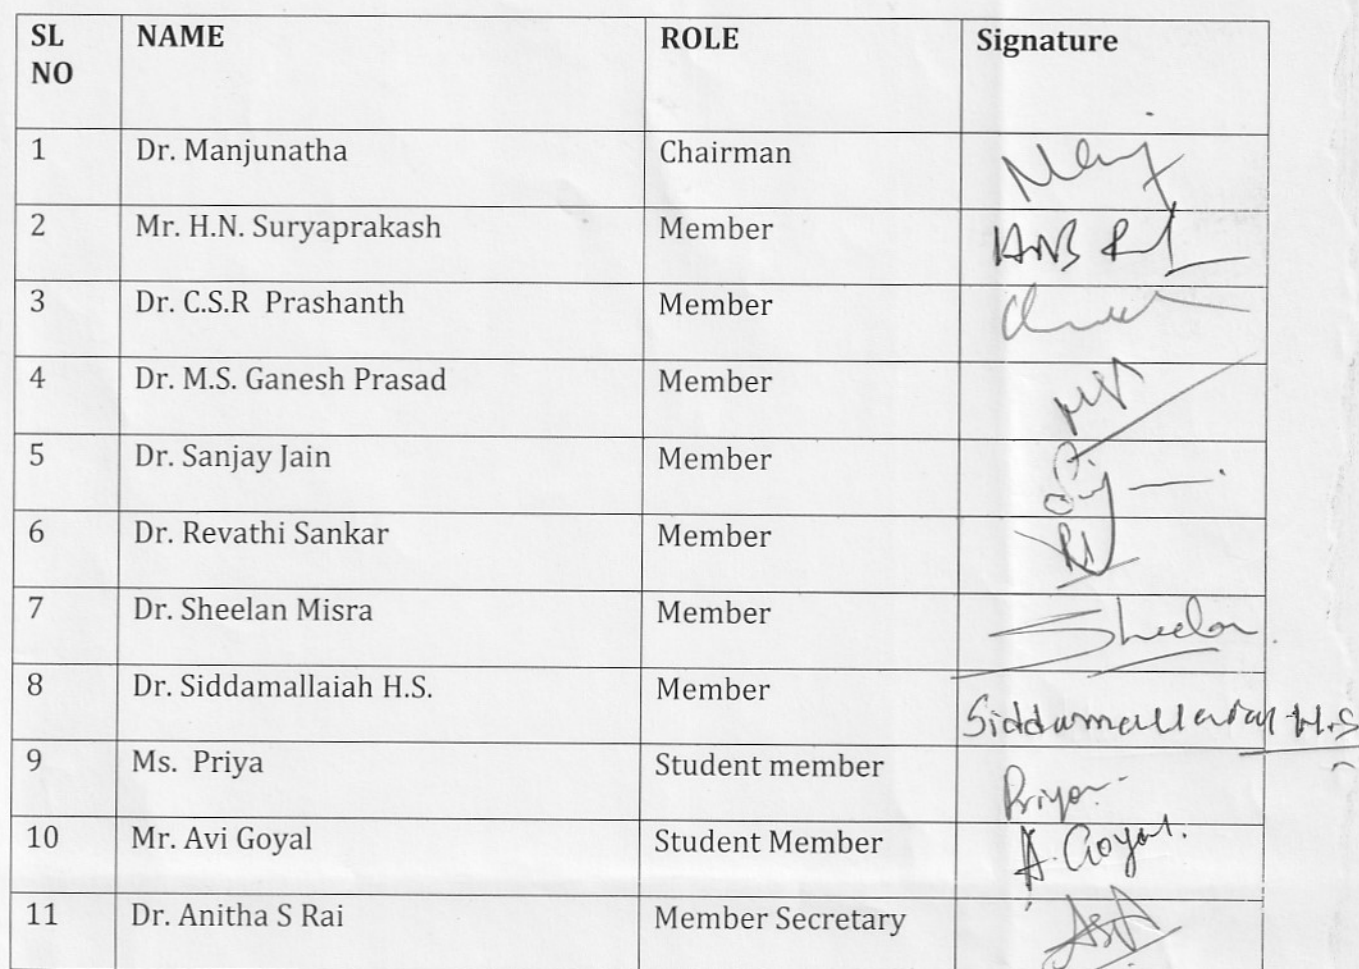 SL NO NAME ROLE Signature
1 Dr. Manjunatha Chairman
2 Mr. H.N. Suryaprakash Member
3 Dr. C.S.R Prashanth Member
4 Dr. M.S. Ganesh Prasad Member
5 Dr. Sanjay Jain Member
6 Dr. Revathi Sankar Member
7 Dr. Sheelan Misra Member Sheelan
8 Dr. Siddamallaiah H.S. Member Siddamallaiah H.S
9 Ms. Priya Student member Priya
10 Mr. Avi Goyal Student Member A. Goyal.
11 Dr. Anitha S Rai Member Secretary